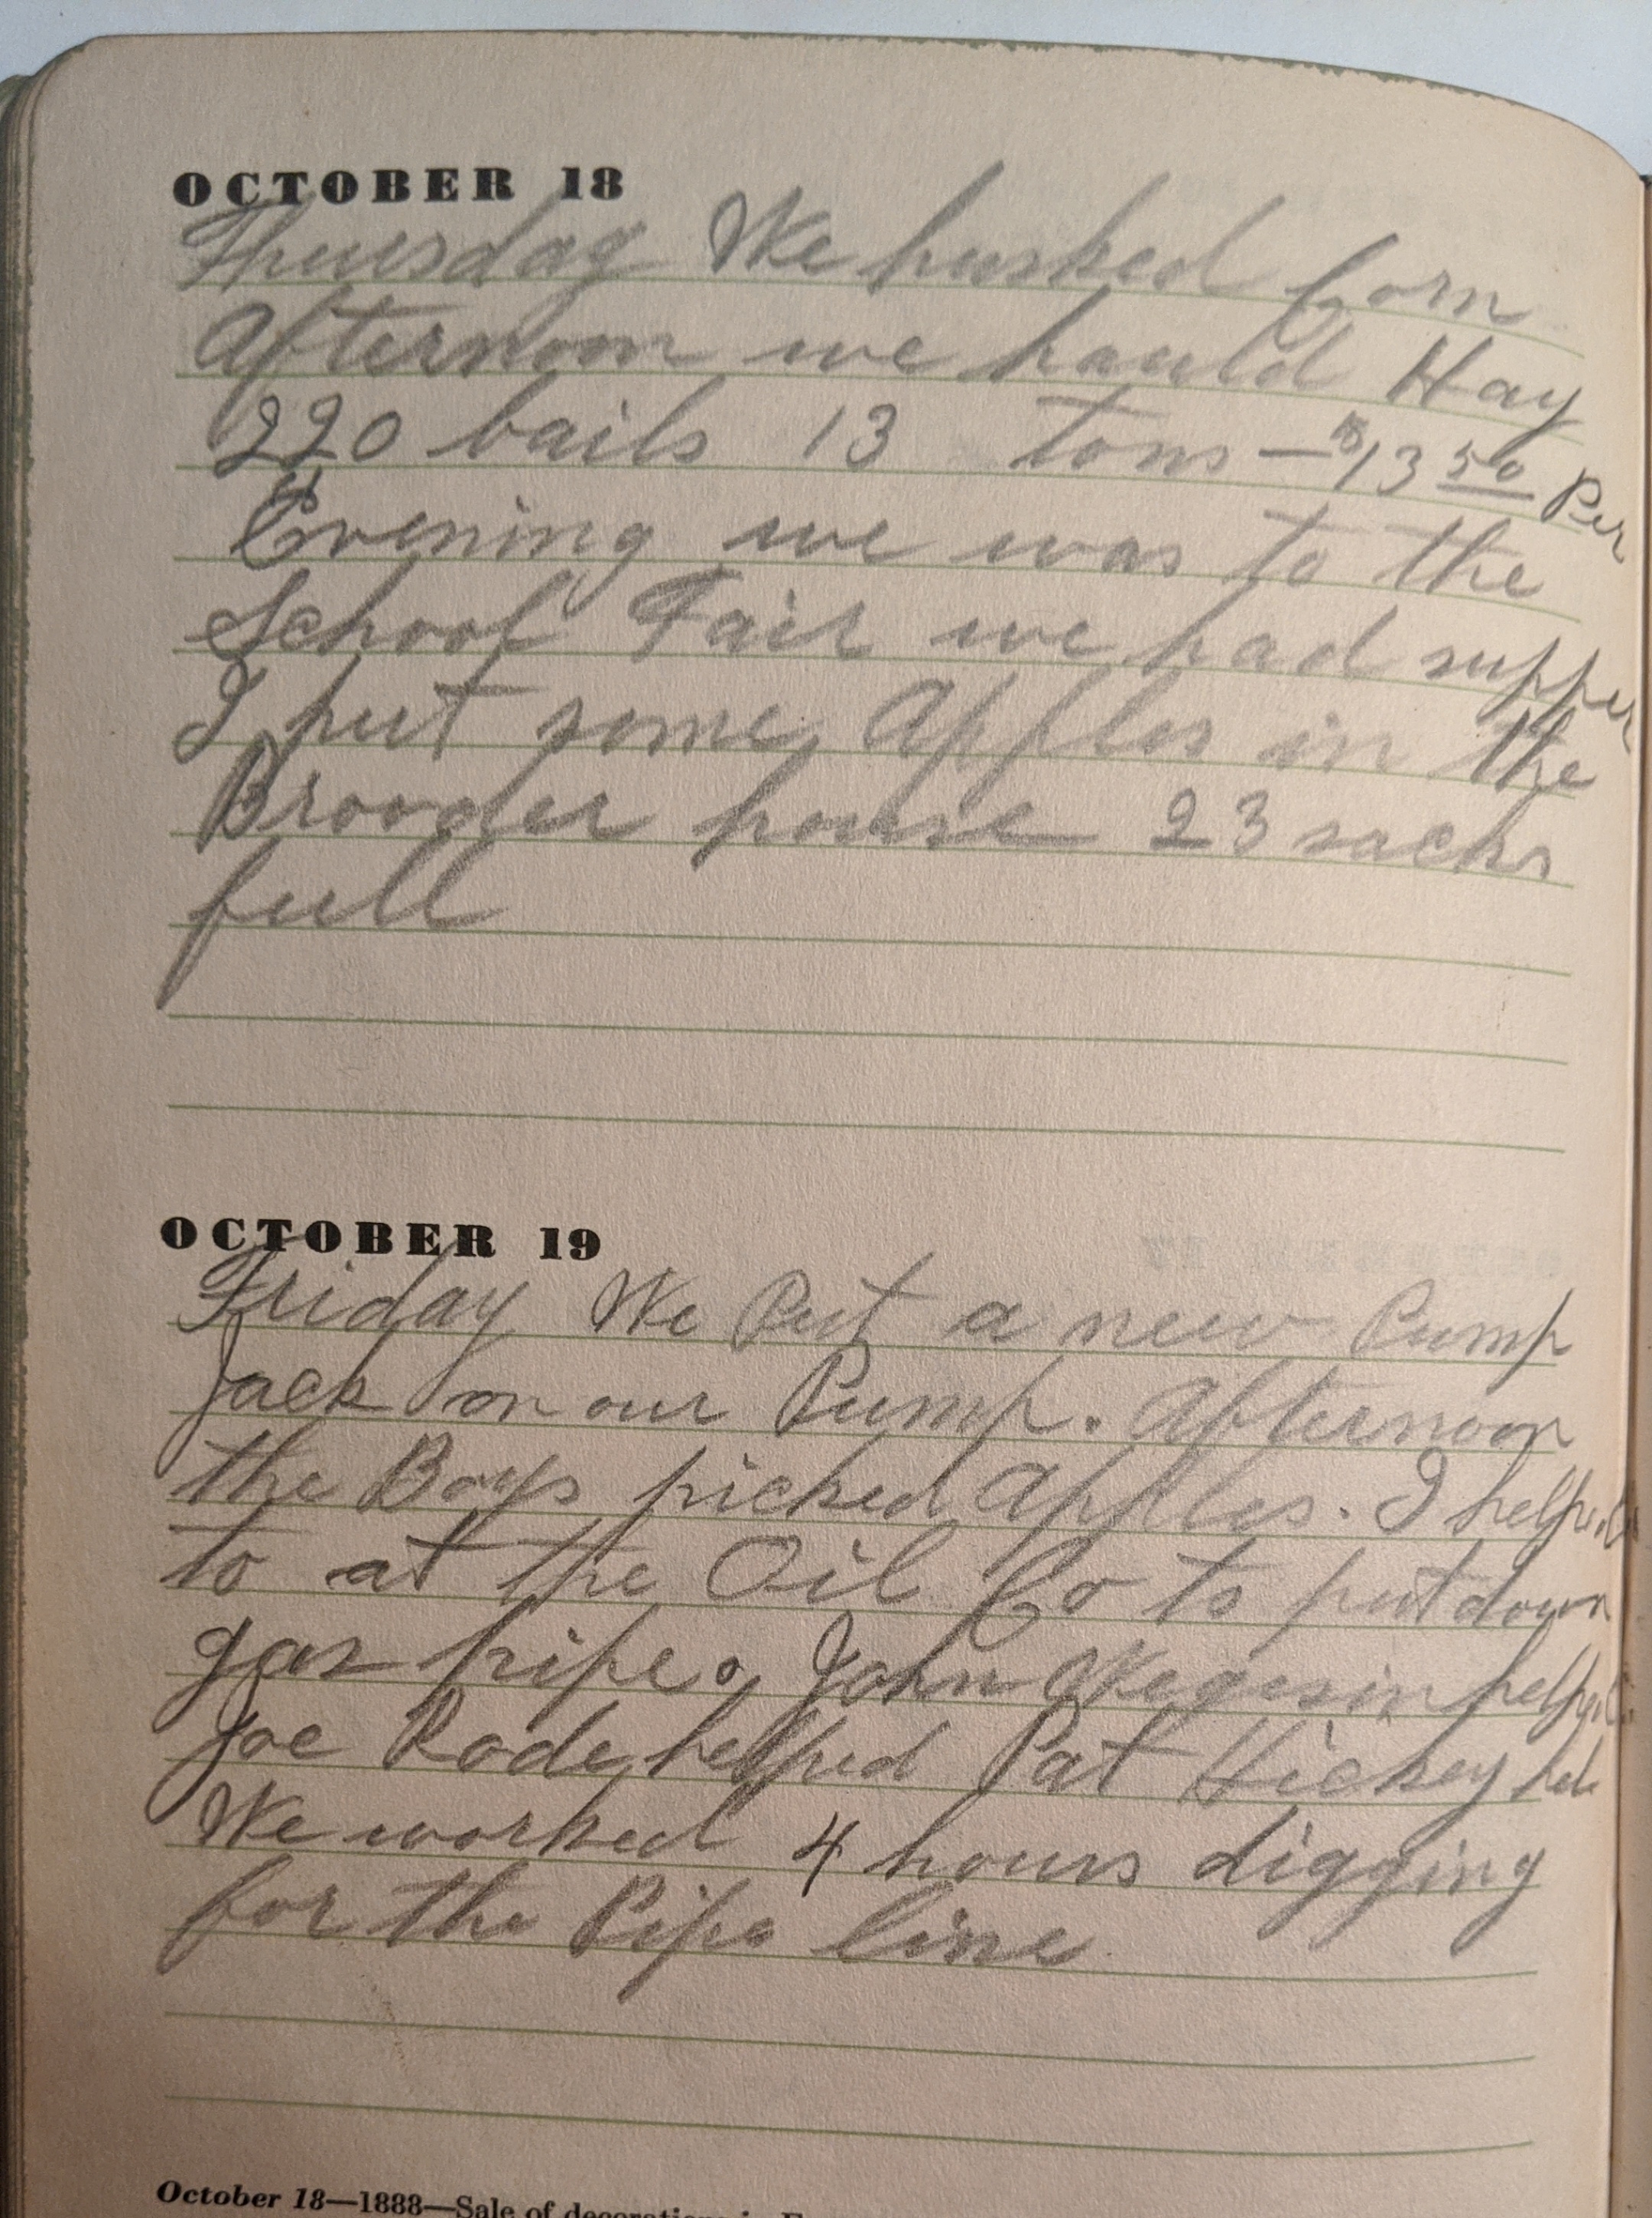 OCTOBER 18
Thursday We husked Corn
Afternoon we hauld Hay
220 bails 13 tons — $13 50 Per
Evening we was to the
School Fair we had supper
I put some Apples in the
Brooder house 23 sacks
full
OCTOBER 19
Friday We Put a new Pump
Jack on our Pump. Afternoon
the Boys picked Apples. I helped
to at the Oil Co to put down
gas pipe. John helped
Joe Rode helped Pat Hickey
We worked 4 hours digging
for the Pipe line
October 18—1888—Sale of decorations in